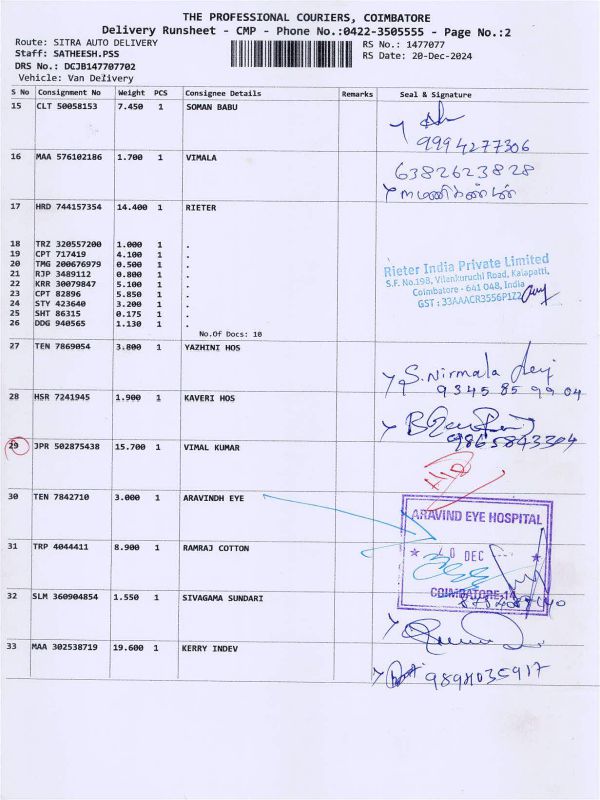 THE PROFESSIONAL COURIERS, COIMBATORE
Delivery Runsheet - CMP - Phone No.:0422-3505555 - Page No.:2
Route: SITRA AUTO DELIVERY
RS No.: 1477077
Staff: SATHEESH.PSS
RS Date: 20-Dec-2024
DRS No.: DCJB147707702
Vehicle: Van Delivery
S No Consignment No Weight PCS Consignee Details Remarks Seal & Signature
15 CLT 50058153 7.450 1 SOMAN BABU
9994277306
16 MAA 576102186 1.700 1 VIMALA
6382623828
மணிகண்டன்
17 HRD 744157354 14.400 1 RIETER
18 TRZ 320557200 1.000 1 .
19 CPT 717419 4.100 1 .
20 TMG 200676979 0.500 1 .
21 RJP 3489112 0.800 1 .
22 KRR 30079847 5.100 1 .
23 CPT 82896 5.850 1 .
24 STY 423640 3.200 1 .
25 SHT 86315 0.175 1 .
26 DDG 940565 1.130 1 .
No.Of Docs: 10
Rieter India Private Limited
S.F. No.198, Vilankuruchi Road, Kalapatti,
Coimbatore - 641 048, India
GST : 33AAACR3556P1ZZ
27 TEN 7869054 3.800 1 YAZHINI HOS
S. Nirmala devi
9345859904
28 HSR 7241945 1.900 1 KAVERI HOS
9865843304
29 JPR 502875438 15.700 1 VIMAL KUMAR
30 TEN 7842710 3.000 1 ARAVINDH EYE
ARAVIND EYE HOSPITAL
DEC
COIMBATORE-14
31 TRP 4044411 8.900 1 RAMRAJ COTTON
32 SLM 360904854 1.550 1 SIVAGAMA SUNDARI
33 MAA 302538719 19.600 1 KERRY INDEV